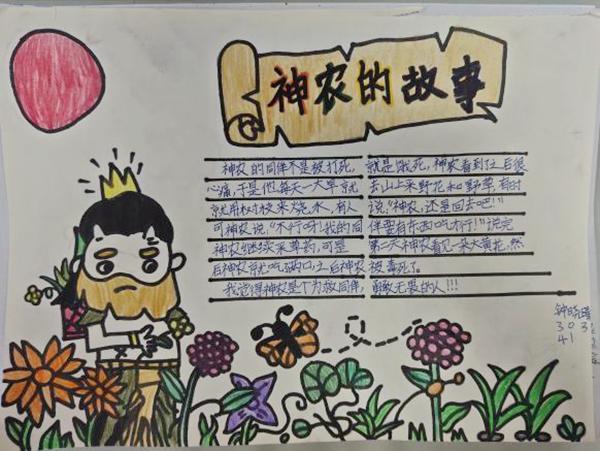 神农的故事
神农的同伴不是被打死,就是饿死,神农看到了之后很
心痛,于是他每天一大早就去山上采野花和野草,有时
就用树枝来烧水,有人说:“神农,还是回去吧!”
可神农说:“不行呀!我的同伴要有东西吃才行!”说完
神农继续采草药,可是第二天神农看见一朵大黄花,然
后神农就吃两口,之后神农被毒死了。
我觉得神农是个为救同伴,勇敢无畏的人!!!
303
41